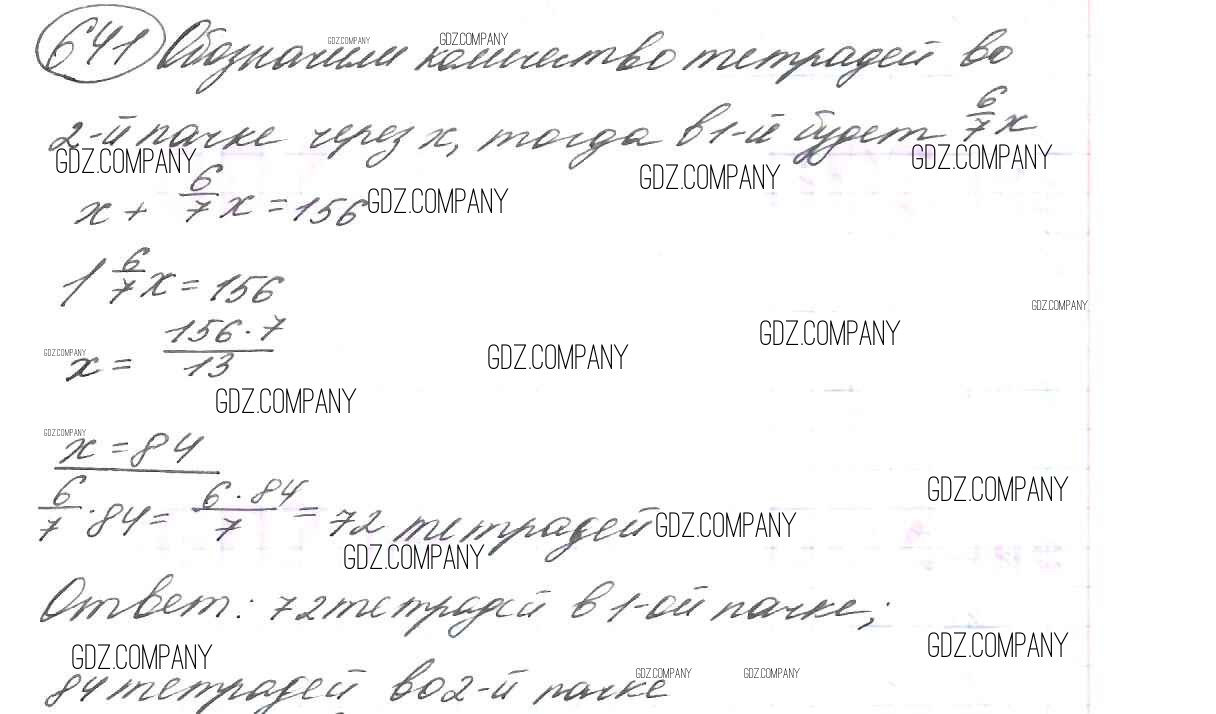 641 Обозначим количество тетрадей во
GDZ.COMPANY GDZ.COMPANY
2-й пачке через x, тогда в 1-й будет 6/7 x
GDZ.COMPANY GDZ.COMPANY GDZ.COMPANY
x + 6/7 x = 156 GDZ.COMPANY
1 6/7 x = 156
GDZ.COMPANY
x = 156 · 7 / 13
GDZ.COMPANY GDZ.COMPANY GDZ.COMPANY
GDZ.COMPANY
GDZ.COMPANY
x = 84
GDZ.COMPANY
6/7 · 84 = 6 · 84 / 7 = 72 тетрадей GDZ.COMPANY
GDZ.COMPANY
Ответ: 72 тетрадей в 1-ой пачке;
GDZ.COMPANY GDZ.COMPANY
84 тетрадей во 2-й пачке
GDZ.COMPANY GDZ.COMPANY